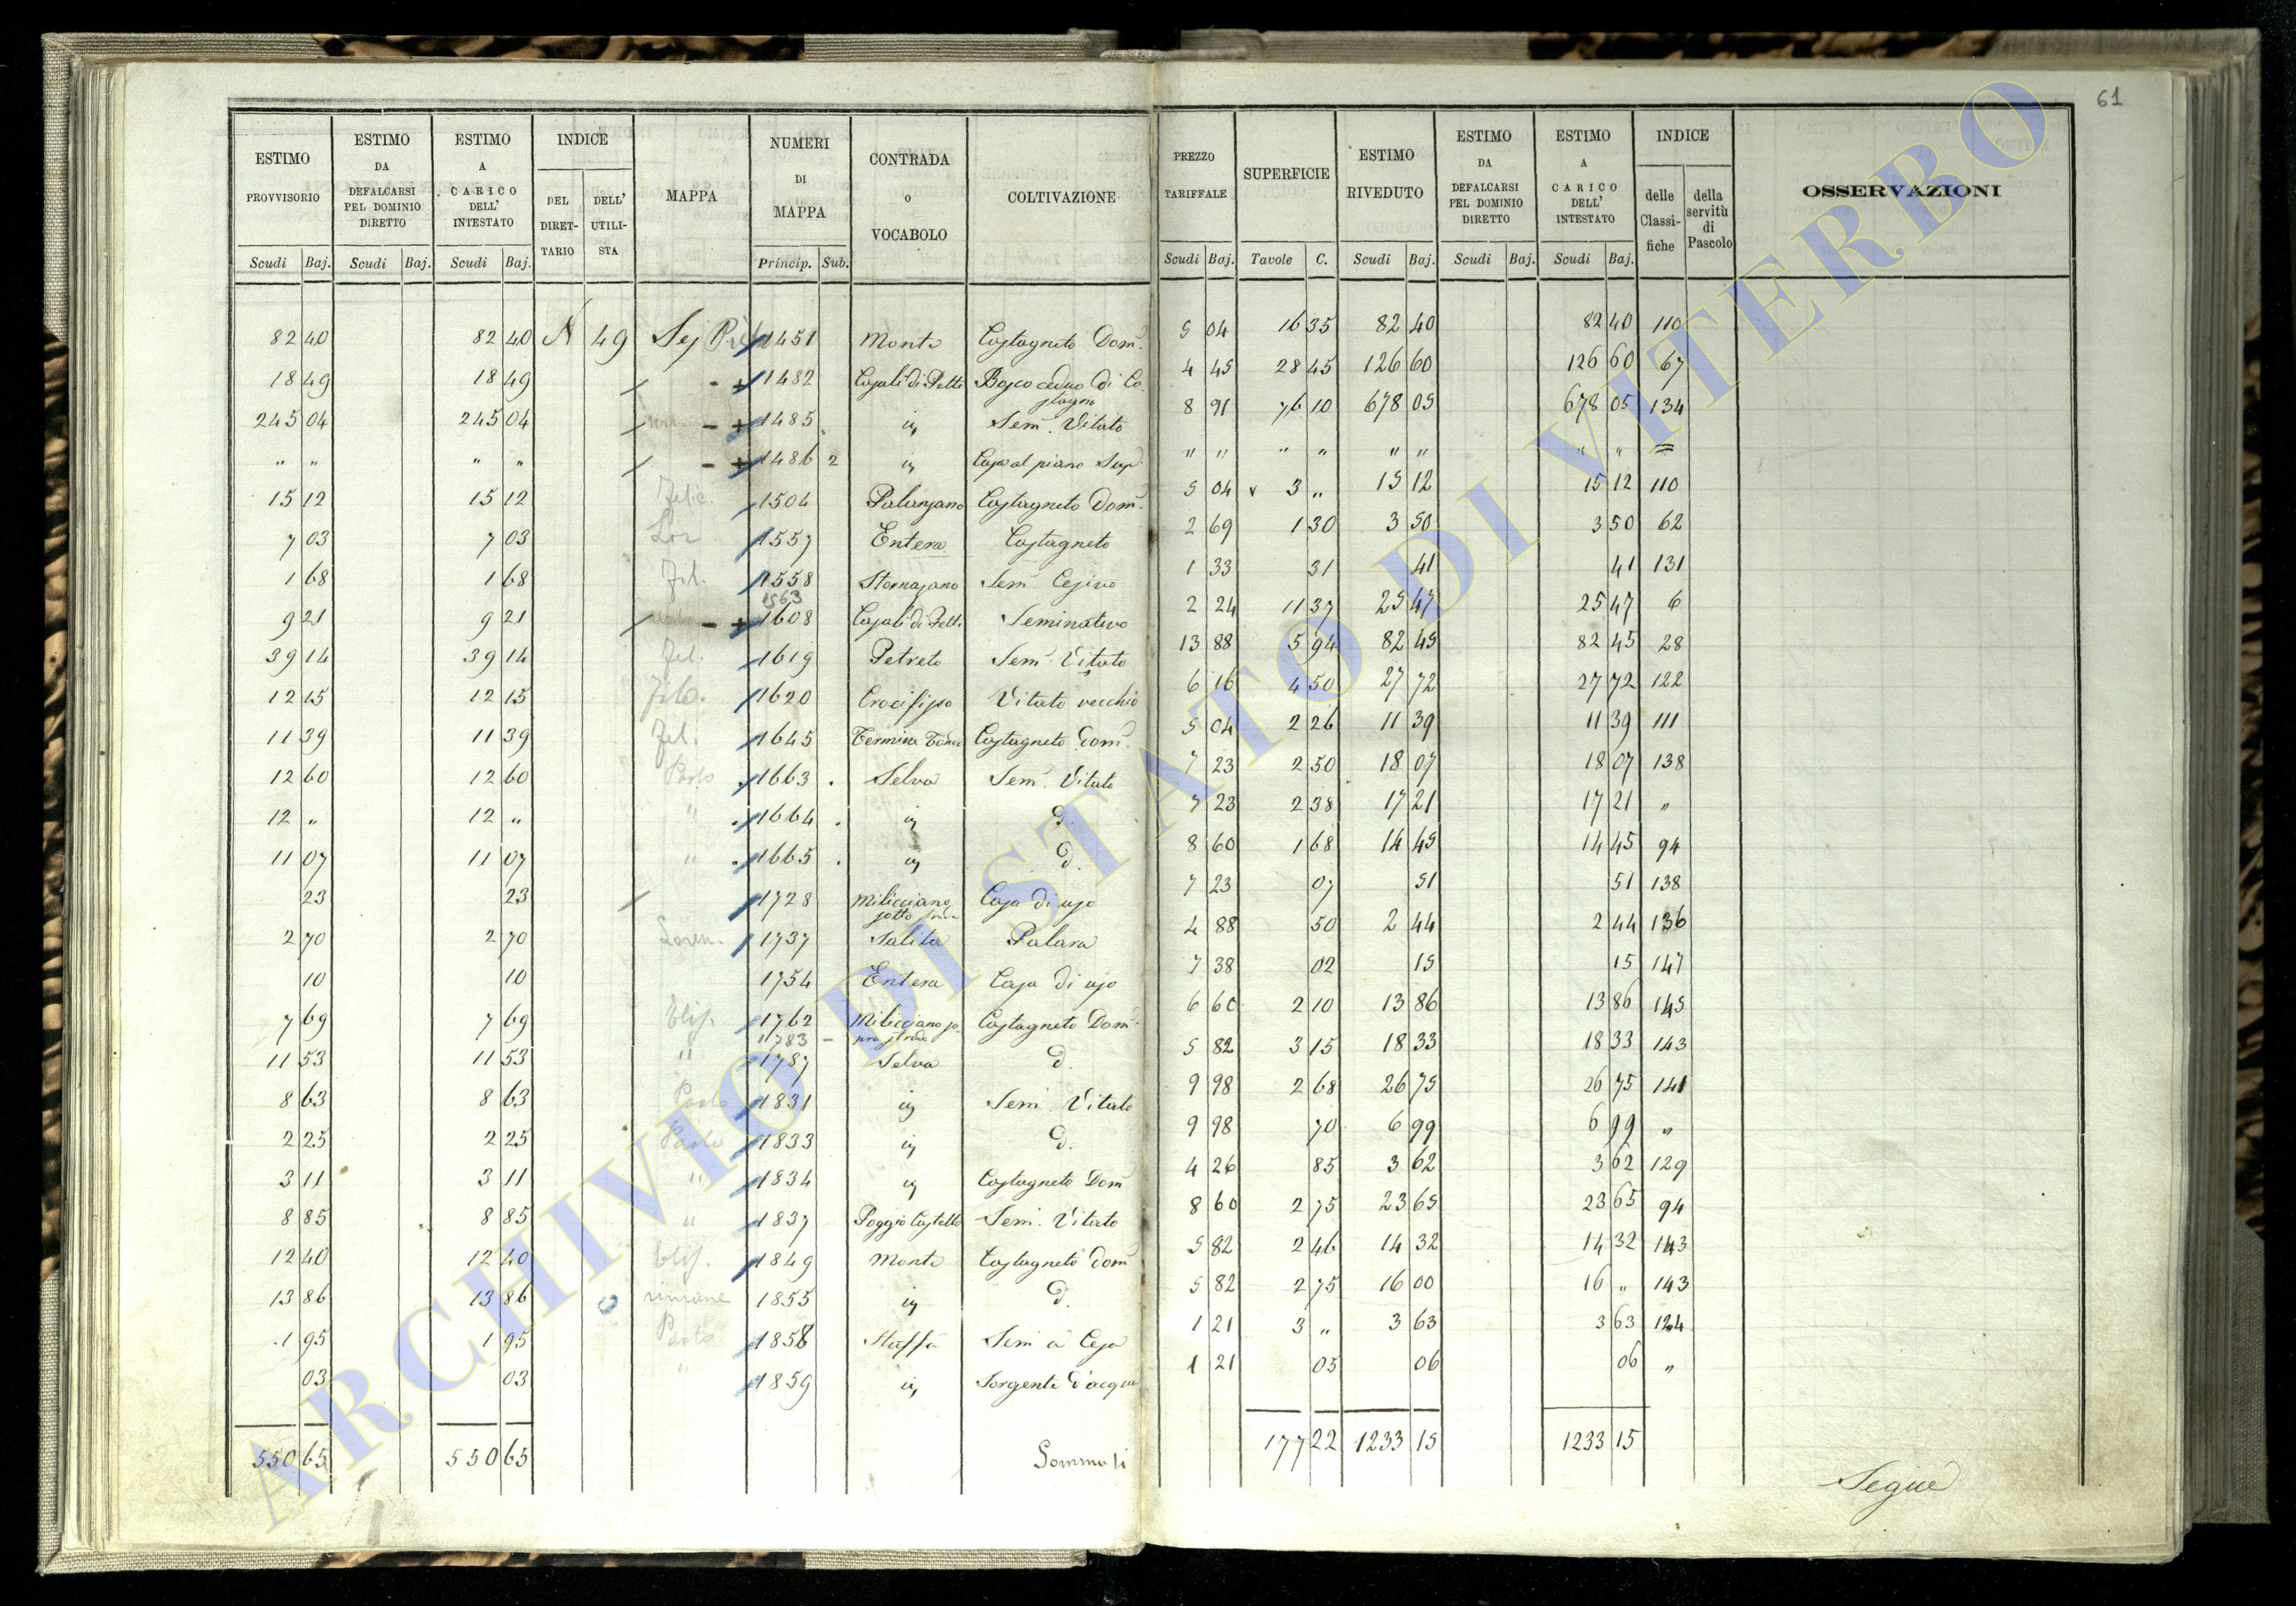 61
ESTIMO PROVVISORIO | ESTIMO DA DEFALCARSI PEL DOMINIO DIRETTO | ESTIMO A CARICO DELL' INTESTATO | INDICE | MAPPA | NUMERI DI MAPPA | CONTRADA o VOCABOLO | COLTIVAZIONE | PREZZO TARIFFALE | SUPERFICIE | ESTIMO RIVEDUTO | ESTIMO DA DEFALCARSI PEL DOMINIO DIRETTO | ESTIMO A CARICO DELL' INTESTATO | INDICE | OSSERVAZIONI
DEL DIRET-TARIO | DELL' UTILI-STA | delle Classi-fiche | della servitù di Pascolo
Scudi Baj. | Scudi Baj. | Scudi Baj. | Princip. Sub. | Scudi Baj. | Tavole C. | Scudi Baj. | Scudi Baj. | Scudi Baj.
82 40 | 82 40 | N 49 | 1451 | Monte | Castagneto Dom. | 5 04 | 16 35 | 82 40 | 82 40 | 110
18 49 | 18 49 | 1482 | Casali di Petti | Bosco ceduo di Castagno | 4 45 | 28 45 | 126 60 | 126 60 | 67
245 04 | 245 04 | 1485 | iy | Sem. Vitato | 8 91 | 76 10 | 678 05 | 678 05 | 134
" " | " " | 1486 2 | iy | Casa al piano Sup. | " " | " " | " " | " "
15 12 | 15 12 | Felic. | 1504 | Palanzano | Castagneto Dom. | 5 04 | 3 " | 15 12 | 15 12 | 110
7 03 | 7 03 | Lor | 1557 | Entera | Castagneto | 2 69 | 1 30 | 3 50 | 3 50 | 62
1 68 | 1 68 | 1558 | Stornajano | Sem | 1 33 | 31 | 41 | 41 | 131
1563
9 21 | 9 21 | 1608 | Casali di Petti | Seminativo | 2 24 | 11 37 | 25 47 | 25 47 | 6
39 14 | 39 14 | Fel. | 1619 | Petreto | Sem. Vitato | 13 88 | 5 94 | 82 45 | 82 45 | 28
12 15 | 12 15 | 1620 | Crocifisso | Vitato vecchio | 6 16 | 4 50 | 27 72 | 27 72 | 122
11 39 | 11 39 | Fel. | 1645 | Termine | Castagneto Dom. | 5 04 | 2 26 | 11 39 | 11 39 | 111
12 60 | 12 60 | Paolo | 1663 | Selva | Sem. Vitato | 7 23 | 2 50 | 18 07 | 18 07 | 138
12 " | 12 " | " | 1664 | iy | d. | 7 23 | 2 38 | 17 21 | 17 21 | "
11 07 | 11 07 | " | 1665 | iy | d. | 8 60 | 1 68 | 14 45 | 14 45 | 94
23 | 23 | 1728 | Milicciano sotto | Casa di uso | 7 23 | 07 | 51 | 51 | 138
2 70 | 2 70 | Loren. | 1737 | Salita | Palara | 4 88 | 50 | 2 44 | 2 44 | 136
10 | 10 | 1754 | Entera | Casa di uso | 7 38 | 02 | 15 | 15 | 147
7 69 | 7 69 | Elis. | 1762 | Milicciano sopra strada | Castagneto Dom. | 6 60 | 2 10 | 13 86 | 13 86 | 145
1783
11 53 | 11 53 | " | 1787 | Selva | d. | 5 82 | 3 15 | 18 33 | 18 33 | 143
8 63 | 8 63 | Paolo | 1831 | iy | Sem. Vitato | 9 98 | 2 68 | 26 75 | 26 75 | 141
2 25 | 2 25 | Paolo | 1833 | iy | d. | 9 98 | 70 | 6 99 | 6 99 | "
3 11 | 3 11 | " | 1834 | iy | Castagneto Dom | 4 26 | 85 | 3 62 | 3 62 | 129
8 85 | 8 85 | " | 1837 | Poggio Castello | Sem. Vitato | 8 60 | 2 75 | 23 65 | 23 65 | 94
12 40 | 12 40 | Elis. | 1849 | Monte | Castagneto Dom | 5 82 | 2 46 | 14 32 | 14 32 | 143
13 86 | 13 86 | rimane | 1855 | iy | d. | 5 82 | 2 75 | 16 00 | 16 " | 143
1 95 | 1 95 | Paolo | 1858 | Staffa | Sem a Cesa | 1 21 | 3 " | 3 63 | 3 63 | 124
03 | 03 | " | 1859 | iy | Sorgente d'acqua | 1 21 | 05 | 06 | 06 | "
550 65 | 550 65 | Sommati | 177 22 | 1233 15 | 1233 15
Segue
ARCHIVIO DI STATO DI VITERBO